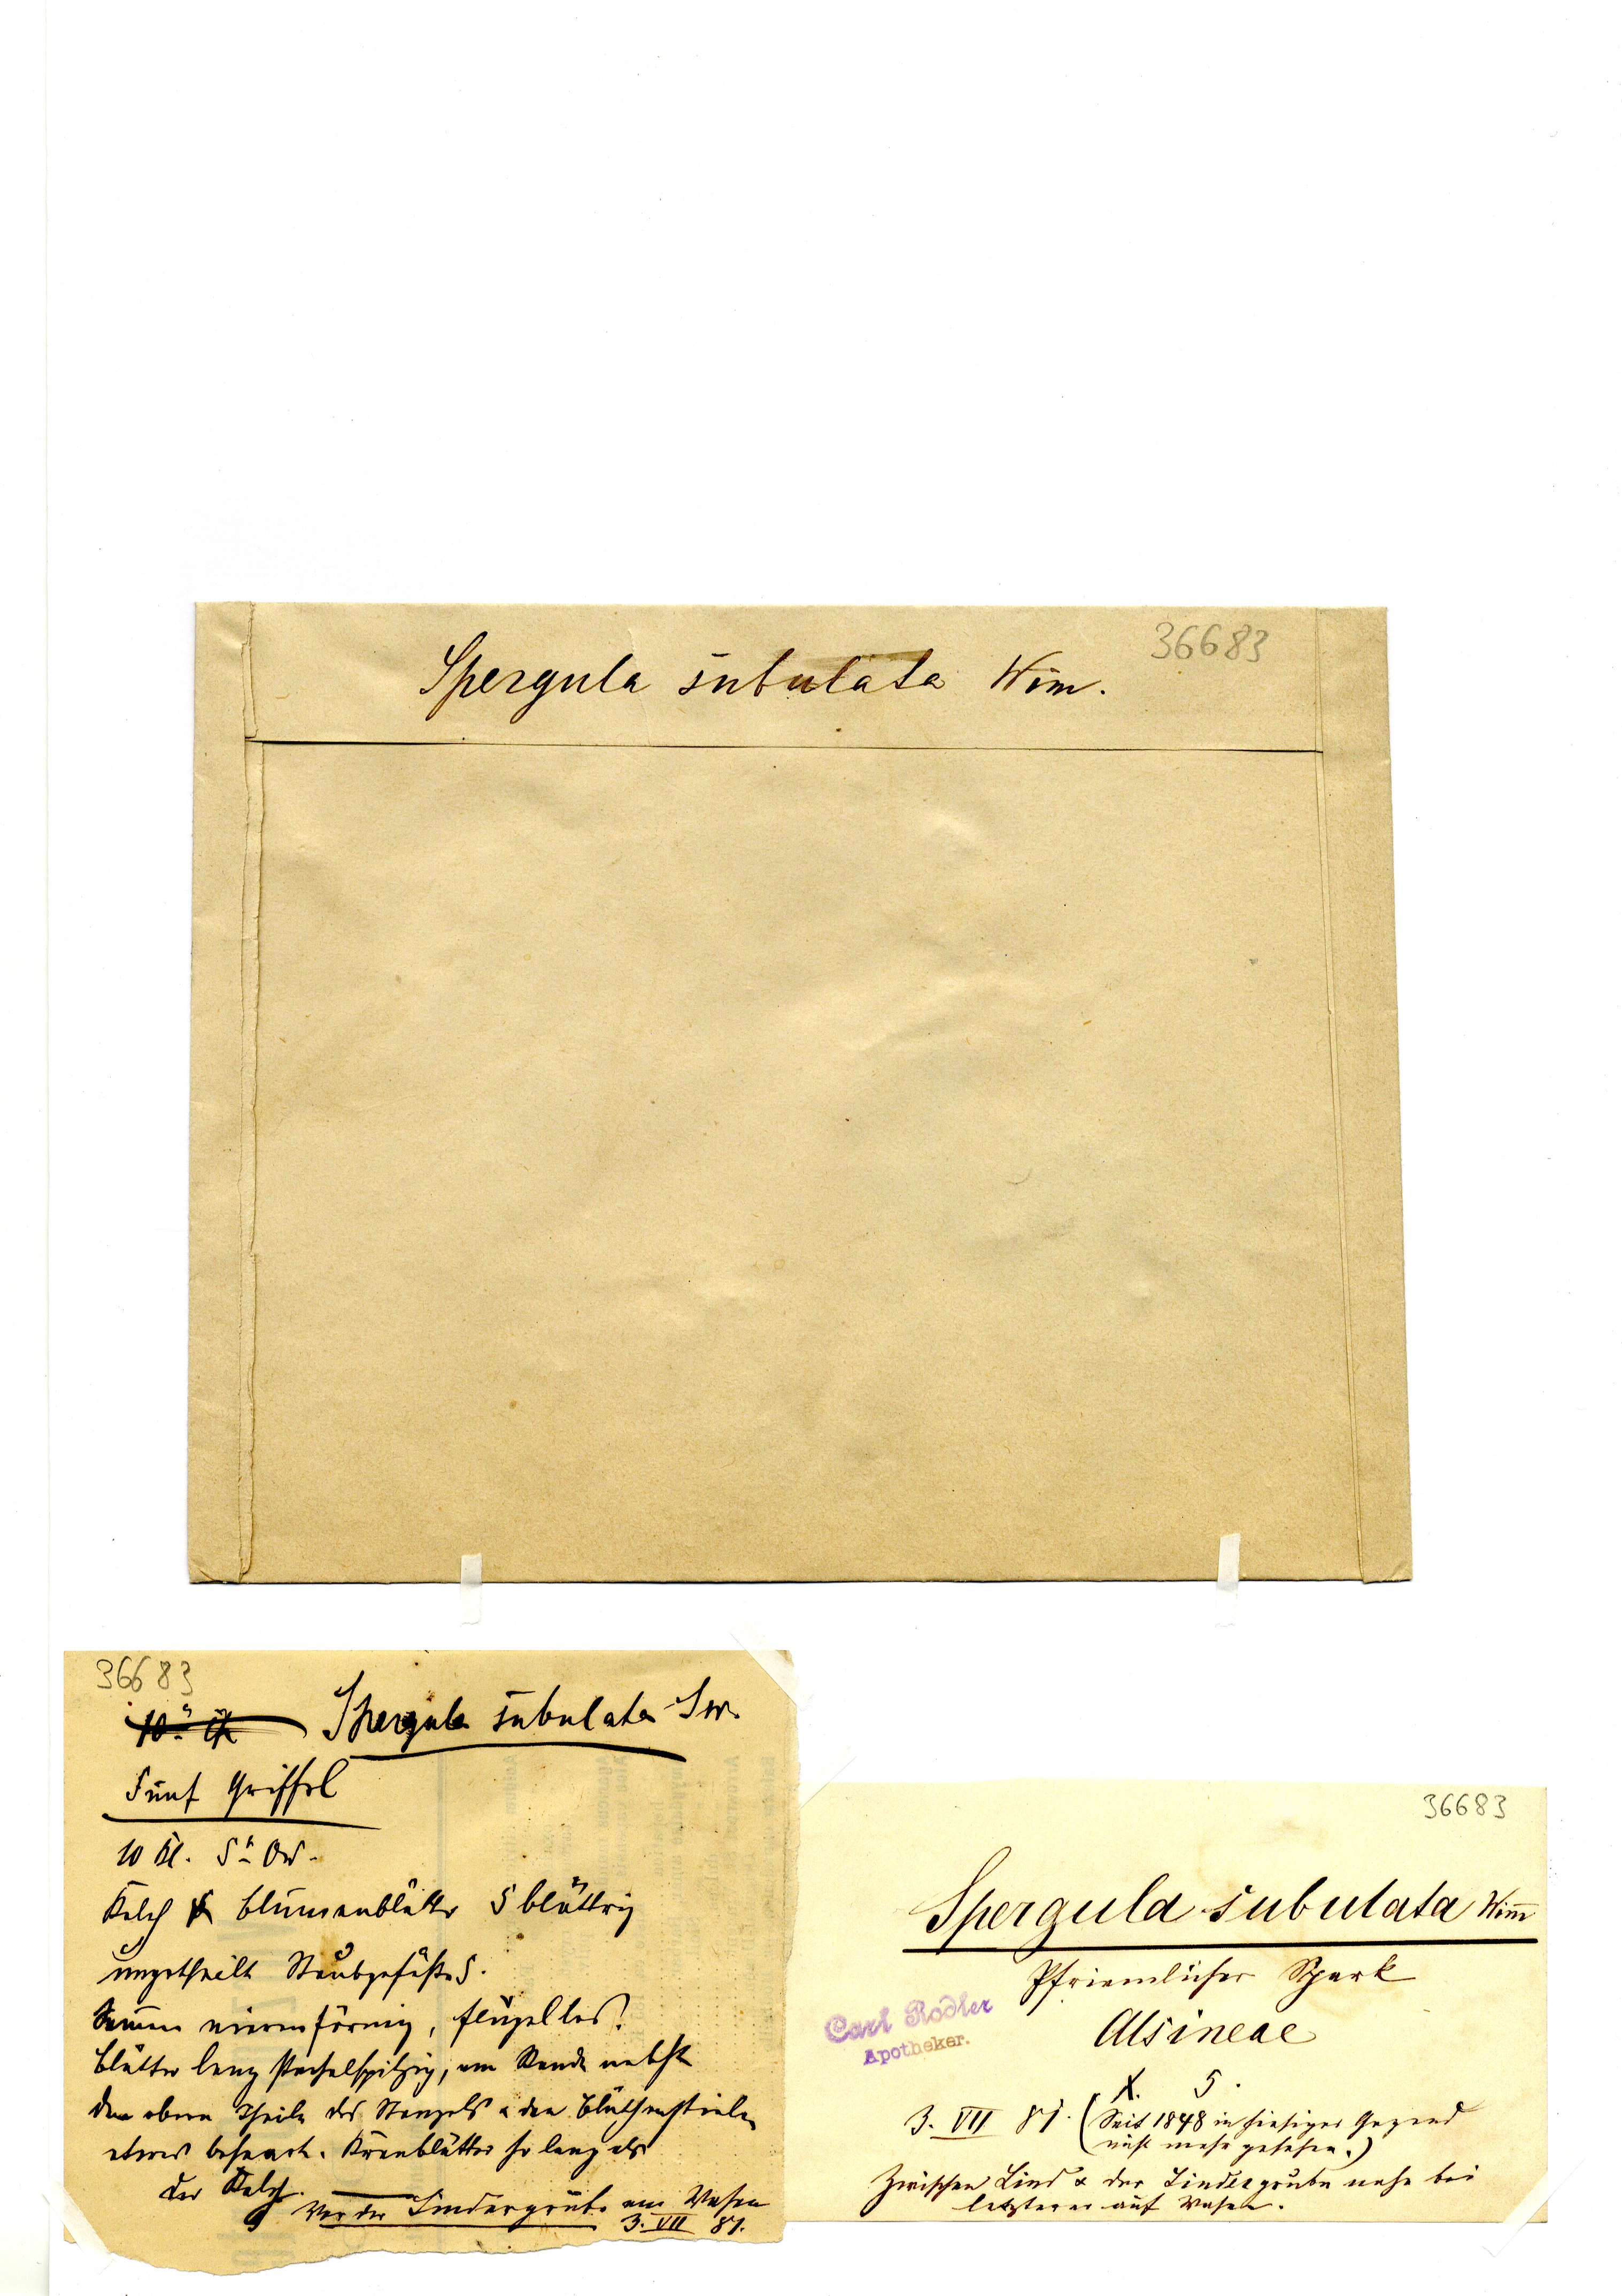 Spergula subulata Wim.
36683
36683
Spergula subulata Sw.
Fünf Griffel
10 Kl. 5te Ord.
Kelch & Blumenblätter 5 blättrig
ungetheilt Staubgefäße 5.
Samen nierenförmig, flügellos.
Blätter lang stachelspitzig, am Rande nebst
dem obern Theile des Stengels & den Blüthenstielen
etwas behaart. Kronblätter so lang als
der Kelch.
Vor der Lindergrube am Wasen
3. VII 81.
36683
Spergula subulata Wim̅
Pfriemlicher Spark
Alsineae
Carl Rodler
Apotheker.
X. 5.
3. VII 81. (Seit 1848 in hiesiger Gegend
nicht mehr gesehen.)
Zwischen Lind & der Lindergrube nahe bei
letzterer auf Wasen.